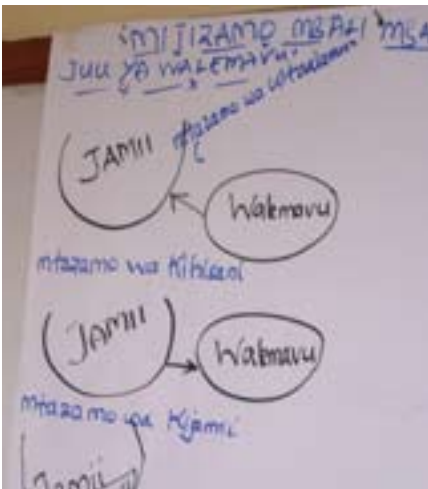 MIJIZAMO MBALI MBA
JUU YA WALEMAVU
mtazamo wa
JAMII
Walemavu
mtazamo wa Kihisani
JAMII
Walemavu
mtazamo wa Kijamii
Jamii